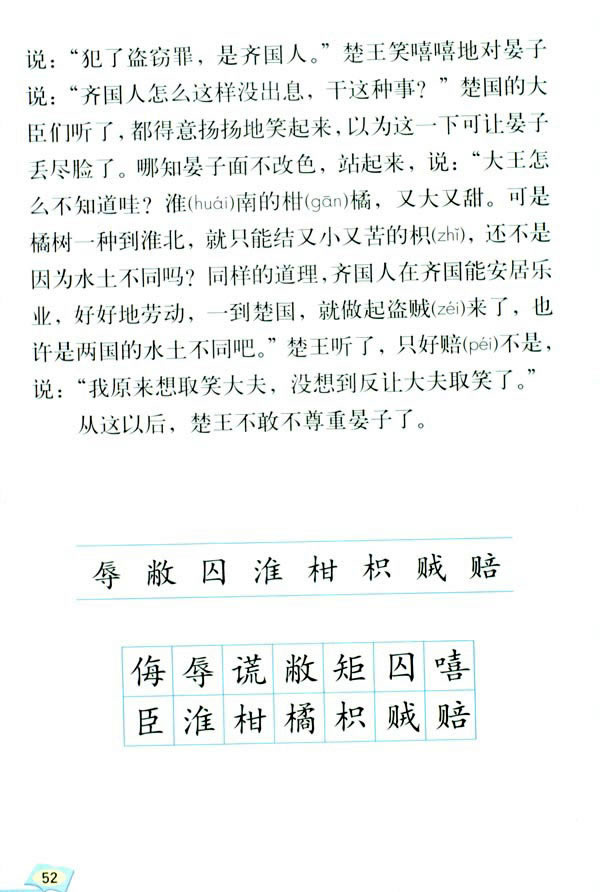 说：“犯了盗窃罪，是齐国人。”楚王笑嘻嘻地对晏子
说：“齐国人怎么这样没出息，干这种事？”楚国的大
臣们听了，都得意扬扬地笑起来，以为这一下可让晏子
丢尽脸了。哪知晏子面不改色，站起来，说：“大王怎
么不知道哇？淮(huái)南的柑(gān)橘，又大又甜。可是
橘树一种到淮北，就只能结又小又苦的枳(zhǐ)，还不是
因为水土不同吗？同样的道理，齐国人在齐国能安居乐
业，好好地劳动，一到楚国，就做起盗贼(zéi)来了，也
许是两国的水土不同吧。”楚王听了，只好赔(péi)不是，
说：“我原来想取笑大夫，没想到反让大夫取笑了。”
从这以后，楚王不敢不尊重晏子了。
辱 敝 囚 淮 柑 枳 贼 赔
侮 辱 谎 敝 矩 囚 嘻
臣 淮 柑 橘 枳 贼 赔
52